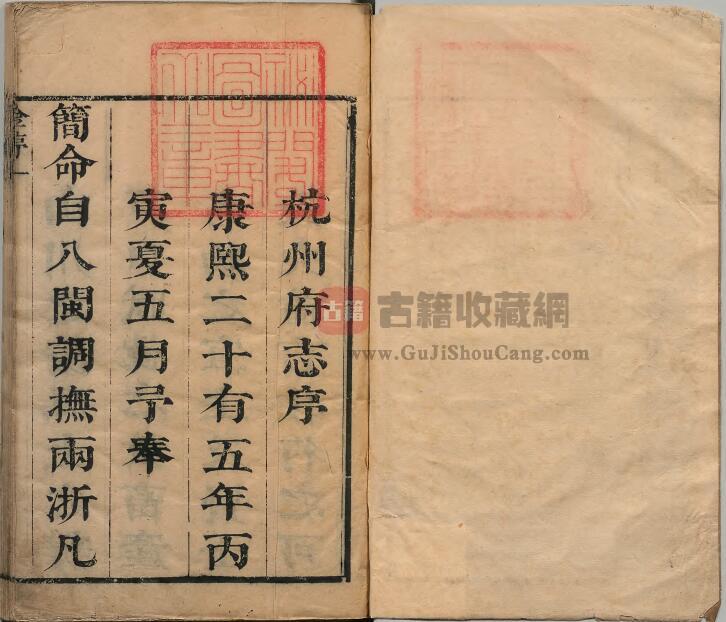 杭州府志序
康熙二十有五年丙
寅夏五月予奉
簡命自八閩調撫兩浙凡
古籍 古籍收藏網
www.GuJiShouCang.com